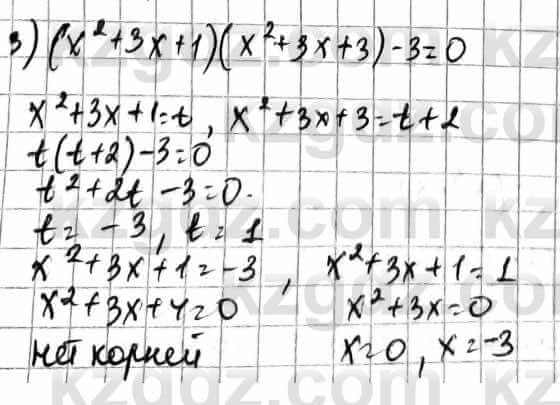 3) (x²+3x+1)(x²+3x+3)-3=0
x²+3x+1=t, x²+3x+3=t+2
t(t+2)-3=0
t²+2t-3=0.
t=-3, t=1
x²+3x+1=-3, x²+3x+1=1
x²+3x+4=0 x²+3x=0
нет корней x=0, x=-3